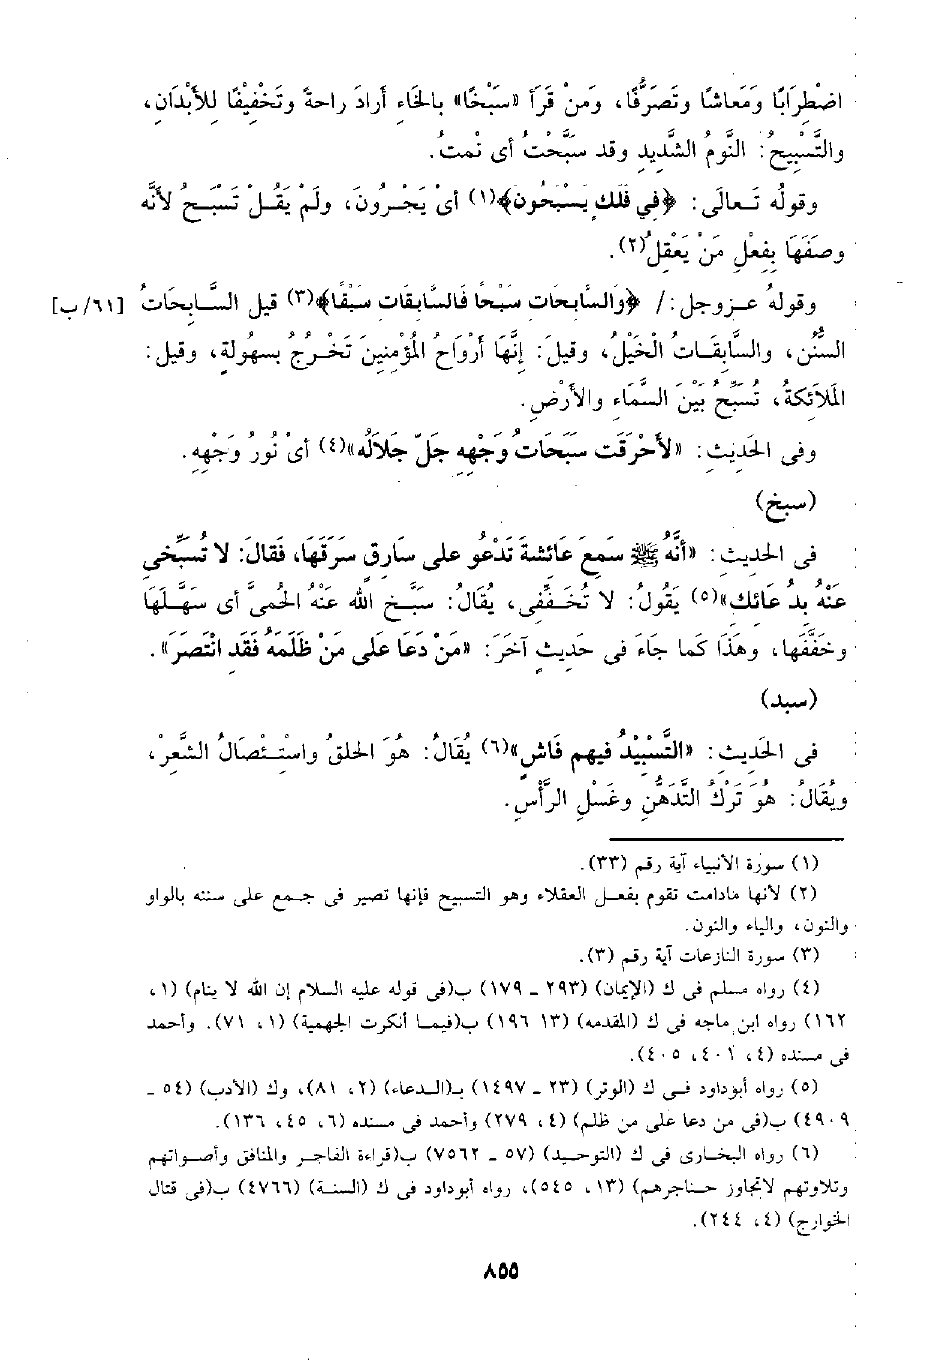 اضْطِرَابًا وَمَعَاشًا وتَصَرُّفًا، وَمَنْ قَرَأَ «سَبْخًا» بالخَاءِ أرَادَ رَاحةً وتَخْفِيفًا لِلأَبْدَانِ،
والتَّسْبِيخُ: النَّوْمُ الشَّدِيدِ وقد سَبَّخْتُ أى نمتُ.
وقولُه تَعالَى: ﴿فِي فَلَكٍ يَسْبَحُونَ﴾(١) أىْ يَجْرُونَ، ولَمْ يَقُلْ تَسْبَحُ لأنَّه
وصَفَهَا بِفعْلِ مَنْ يَعْقِلُ(٢).
وقولهُ عزوجل: / ﴿وَالسَّابِحَات سَبْحًا فَالسَّابقَات سَبْقًا﴾(٣) قيل السَّابِحَاتُ [٦١/ب]
السُّفُن، والسَّابِقَاتُ الْخَيْلُ، وقيلَ: إِنَّهَا أَرْوَاحُ المُؤْمِنِينَ تَخْرُجُ بسهُولةٍ، وقيل:
الملاَئِكةُ، تُسَبِّحُ بَيْنَ السَّمَاءِ والأَرْضِ.
وفى الحَدِيثِ: «لأَحْرَقَت سَبَحَاتُ وَجْهِهِ جَلَّ جَلَالُه»(٤) أىْ نُورُ وَجْهِهِ.
(سبخ)
فى الحديث: «أنَّهُ ﷺ سَمعَ عَائشةَ تَدْعُو على سَارقٍ سَرَقَهَا، فَقَالَ: لا تُسَبِّخي
عَنْهُ بِدُعَائك»(٥) يَقُولُ: لا تُخَفِّفِى، يُقَالُ: سَبَّخ اللهُ عَنْهُ الحُمىَّ أى سَهَّلَهَا
وخَفَّفَها، وهَذَا كَما جَاءَ فى حَدِيثٍ آخَرَ: «مَنْ دَعَا عَلى مَنْ ظَلَمَهُ فَقَد انْتَصَرَ».
(سبد)
فى الحَدِيث: «التَّسْبِيْدُ فيهِم فَاشٍ»(٦) يُقَالُ: هُوَ الحَلقُ واسْتِئْصَالُ الشَّعرْ،
ويُقَالُ: هُوَ تَرْكُ التَّدَهُّنِ وغَسْلِ الرَّأْسِ.
(١) سورة الأنبياء آية رقم (٣٣).
(٢) لأنها مادامت تقوم بفعل العقلاء وهو التسبيح فإنها تصير فى جمع على سننه بالواو
والنون، والياء والنون.
(٣) سورة النازعات آية رقم (٣).
(٤) رواه مسلم فى ك (الإيمان) (٢٩٣ ـ ١٧٩) ب(فى قوله عليه السلام إن الله لا ينام) (١،
١٦٢) رواه ابن ماجه فى ك (المقدمه) (١٣ ١٩٦) ب(فيما أنكرت الجهمية) (١، ٧١). وأحمد
فى مسنده (٤، ٤٠١، ٤٠٥).
(٥) رواه أبوداود فى ك (الوتر) (٢٣ ـ ١٤٩٧) بـ(الدعاء) (٢، ٨١)، وك (الأدب) (٥٤ ـ
٤٩٠٩) ب(فى من دعا على من ظلم) (٤، ٢٧٩) وأحمد فى مسنده (٦، ٤٥، ١٣٦).
(٦) رواه البخارى فى ك (التوحيد) (٥٧ ـ ٧٥٦٢) ب(قراءة الفاجر والمنافق وأصواتهم
وتلاوتهم لاتجاوز حناجرهم) (١٣، ٥٤٥)، رواه أبوداود فى ك (السنة) (٤٧٦٦) ب(فى قتال
الخوارج) (٤، ٢٤٤).
٨٥٥